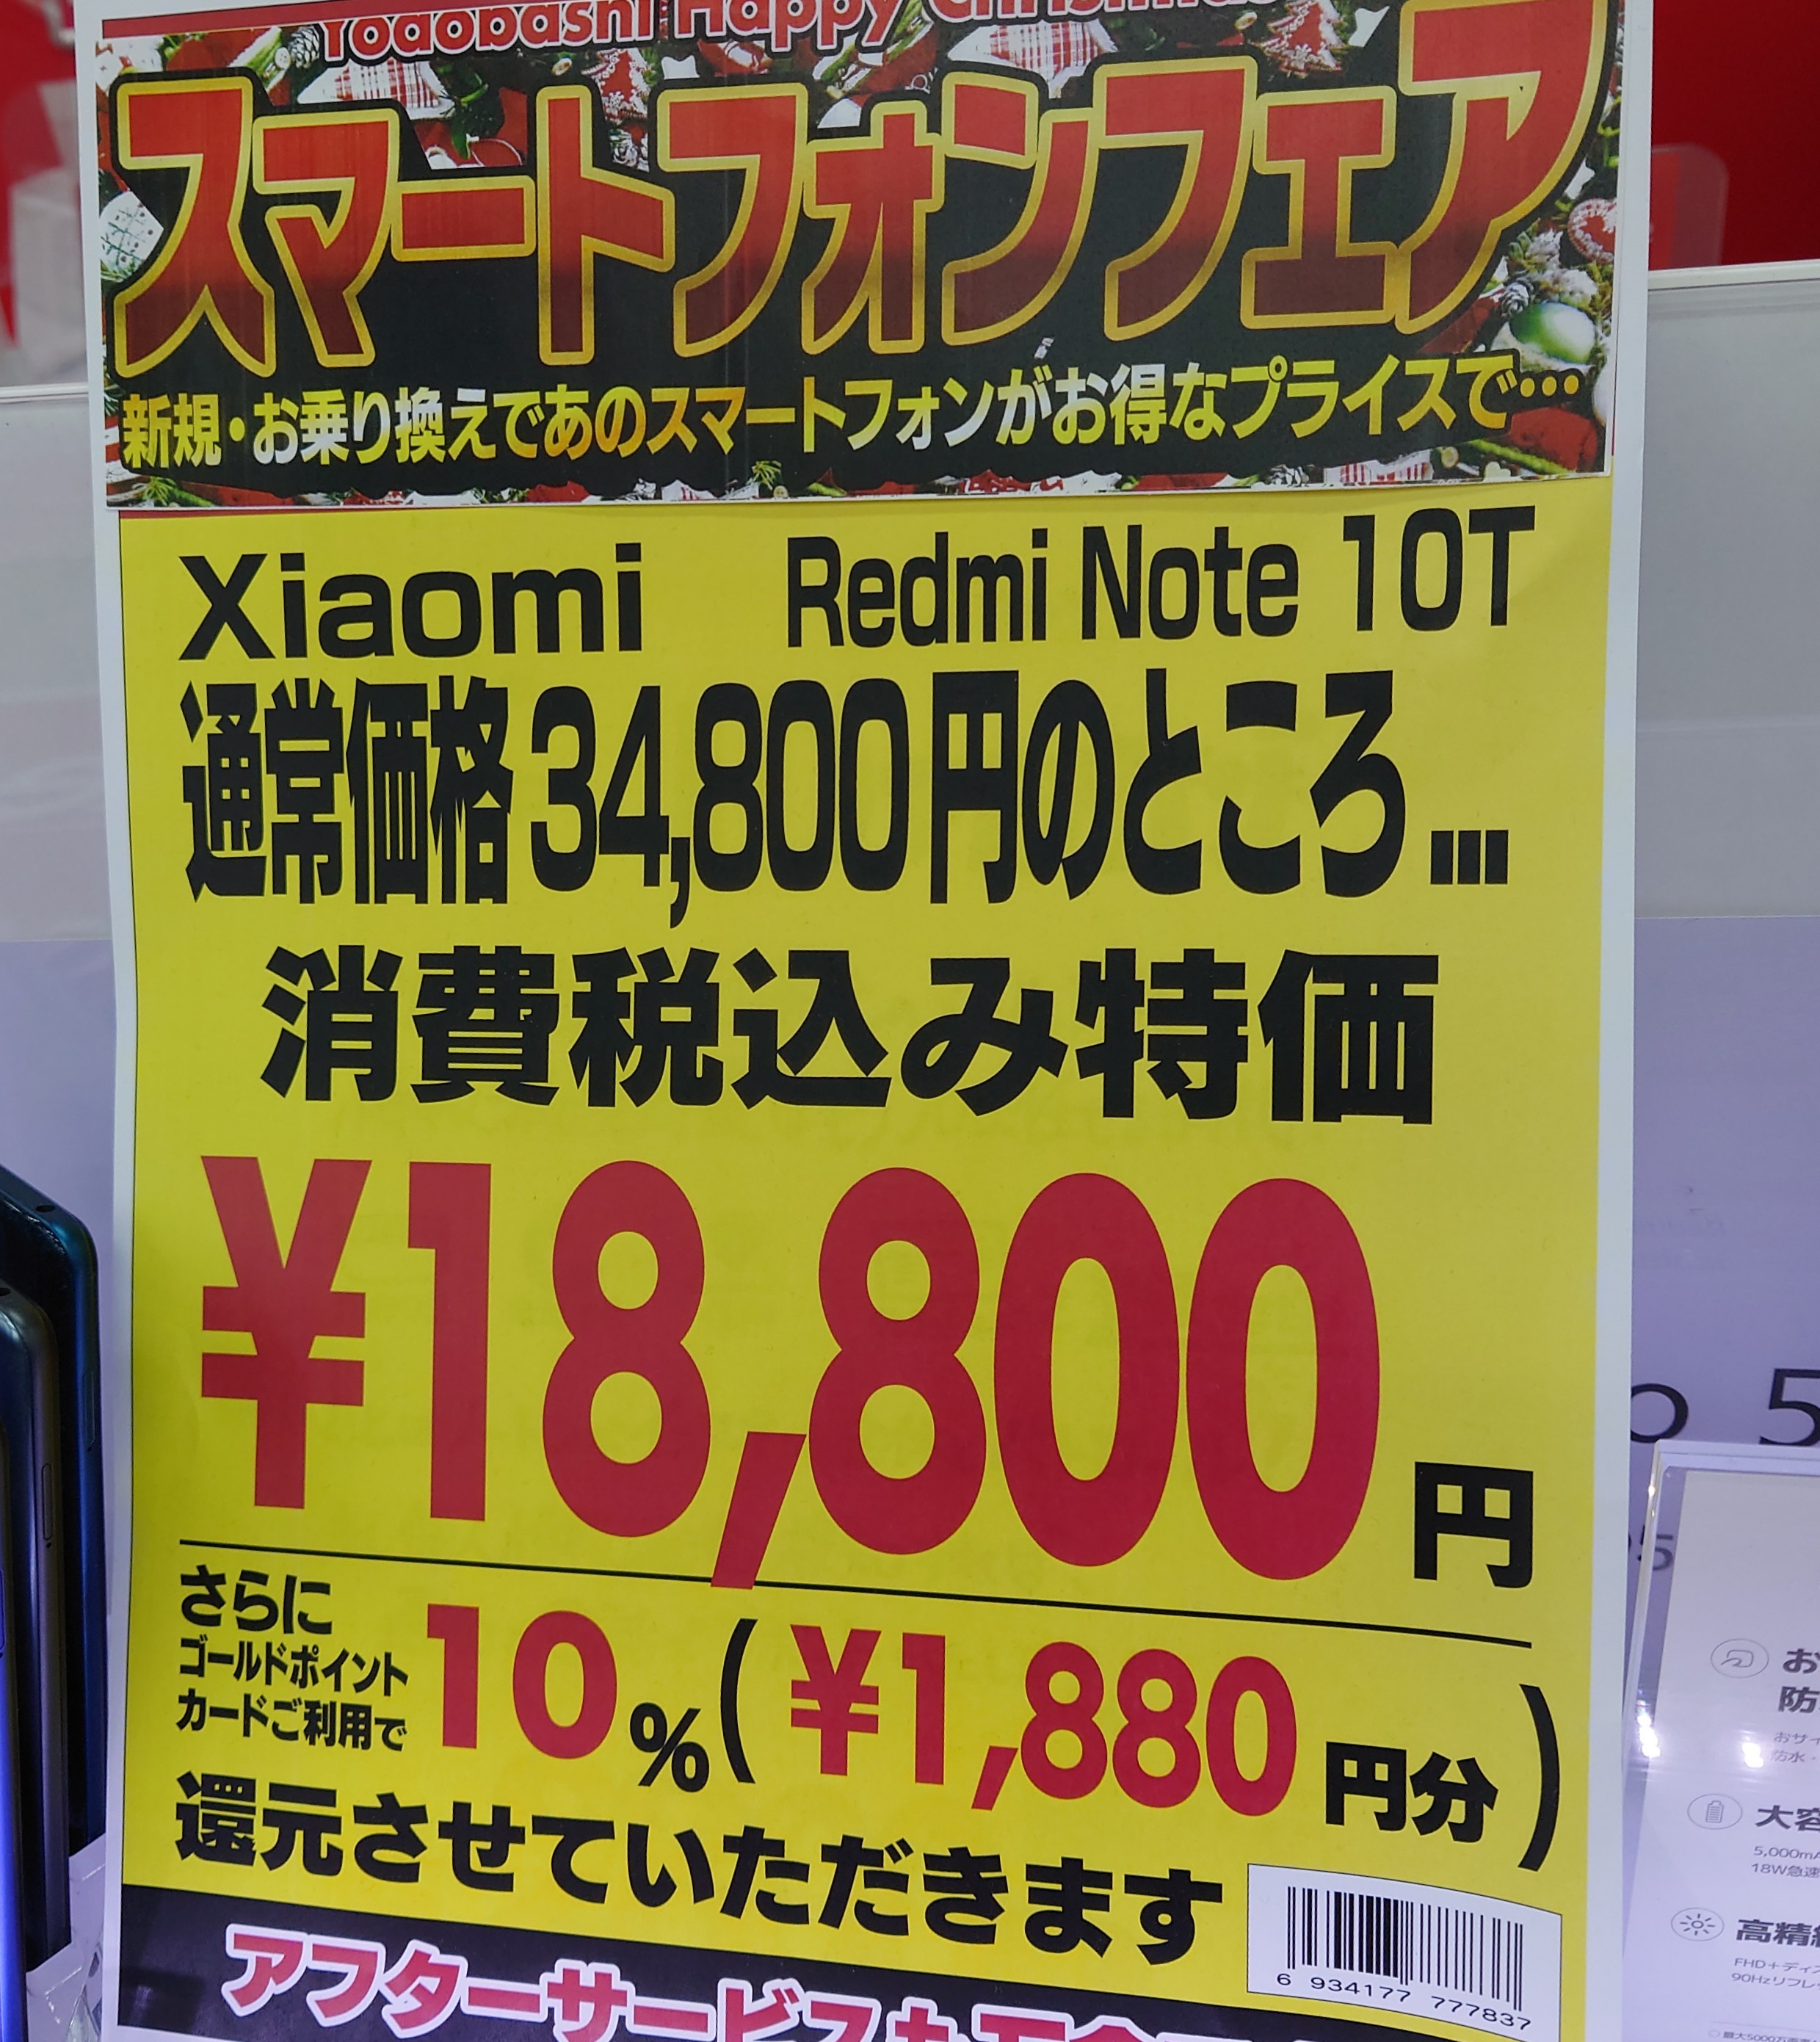 Yodobashi Happy Christmas
スマートフォンフェア
新規・お乗り換えであのスマートフォンがお得なプライスで…
Xiaomi Redmi Note 10T
通常価格34,800円のところ...
消費税込み特価
¥18,800円
さらに
ゴールドポイント
カードご利用で
10%(¥1,880円分)
還元させていただきます
6 934177 777837
アフターサービスも
o 5
お
防
おサイ
防水・
大容
5,000mA
18W急速
高精細
FHD+ディス
90Hzリフレ